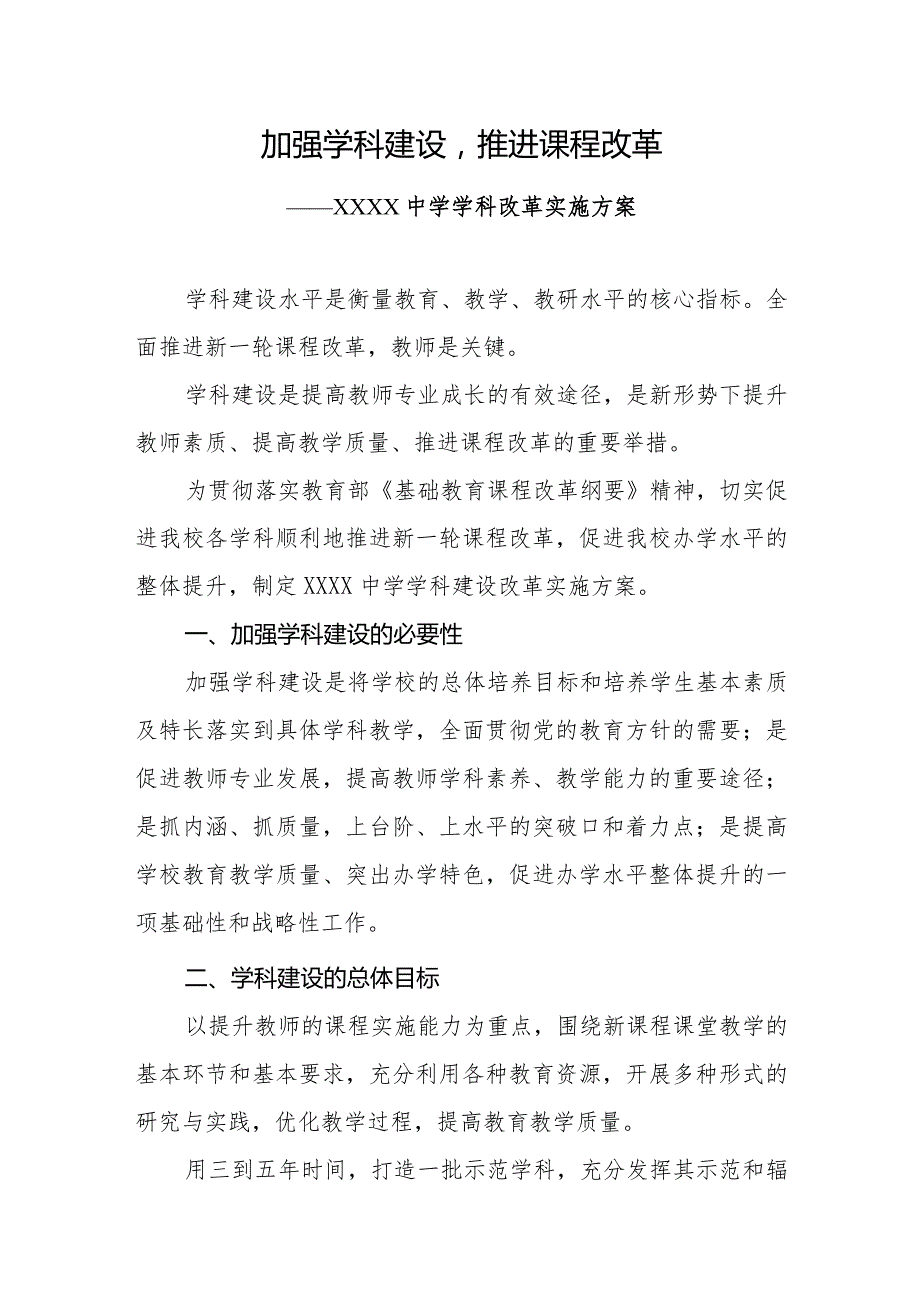 加强学科建设，推进课程改革
——XXXX中学学科改革实施方案
学科建设水平是衡量教育、教学、教研水平的核心指标。全
面推进新一轮课程改革，教师是关键。
学科建设是提高教师专业成长的有效途径，是新形势下提升
教师素质、提高教学质量、推进课程改革的重要举措。
为贯彻落实教育部《基础教育课程改革纲要》精神，切实促
进我校各学科顺利地推进新一轮课程改革，促进我校办学水平的
整体提升，制定XXXX中学学科建设改革实施方案。
一、加强学科建设的必要性
加强学科建设是将学校的总体培养目标和培养学生基本素质
及特长落实到具体学科教学，全面贯彻党的教育方针的需要；是
促进教师专业发展，提高教师学科素养、教学能力的重要途径；
是抓内涵、抓质量，上台阶、上水平的突破口和着力点；是提高
学校教育教学质量、突出办学特色，促进办学水平整体提升的一
项基础性和战略性工作。
二、学科建设的总体目标
以提升教师的课程实施能力为重点，围绕新课程课堂教学的
基本环节和基本要求，充分利用各种教育资源，开展多种形式的
研究与实践，优化教学过程，提高教育教学质量。
用三到五年时间，打造一批示范学科，充分发挥其示范和辐